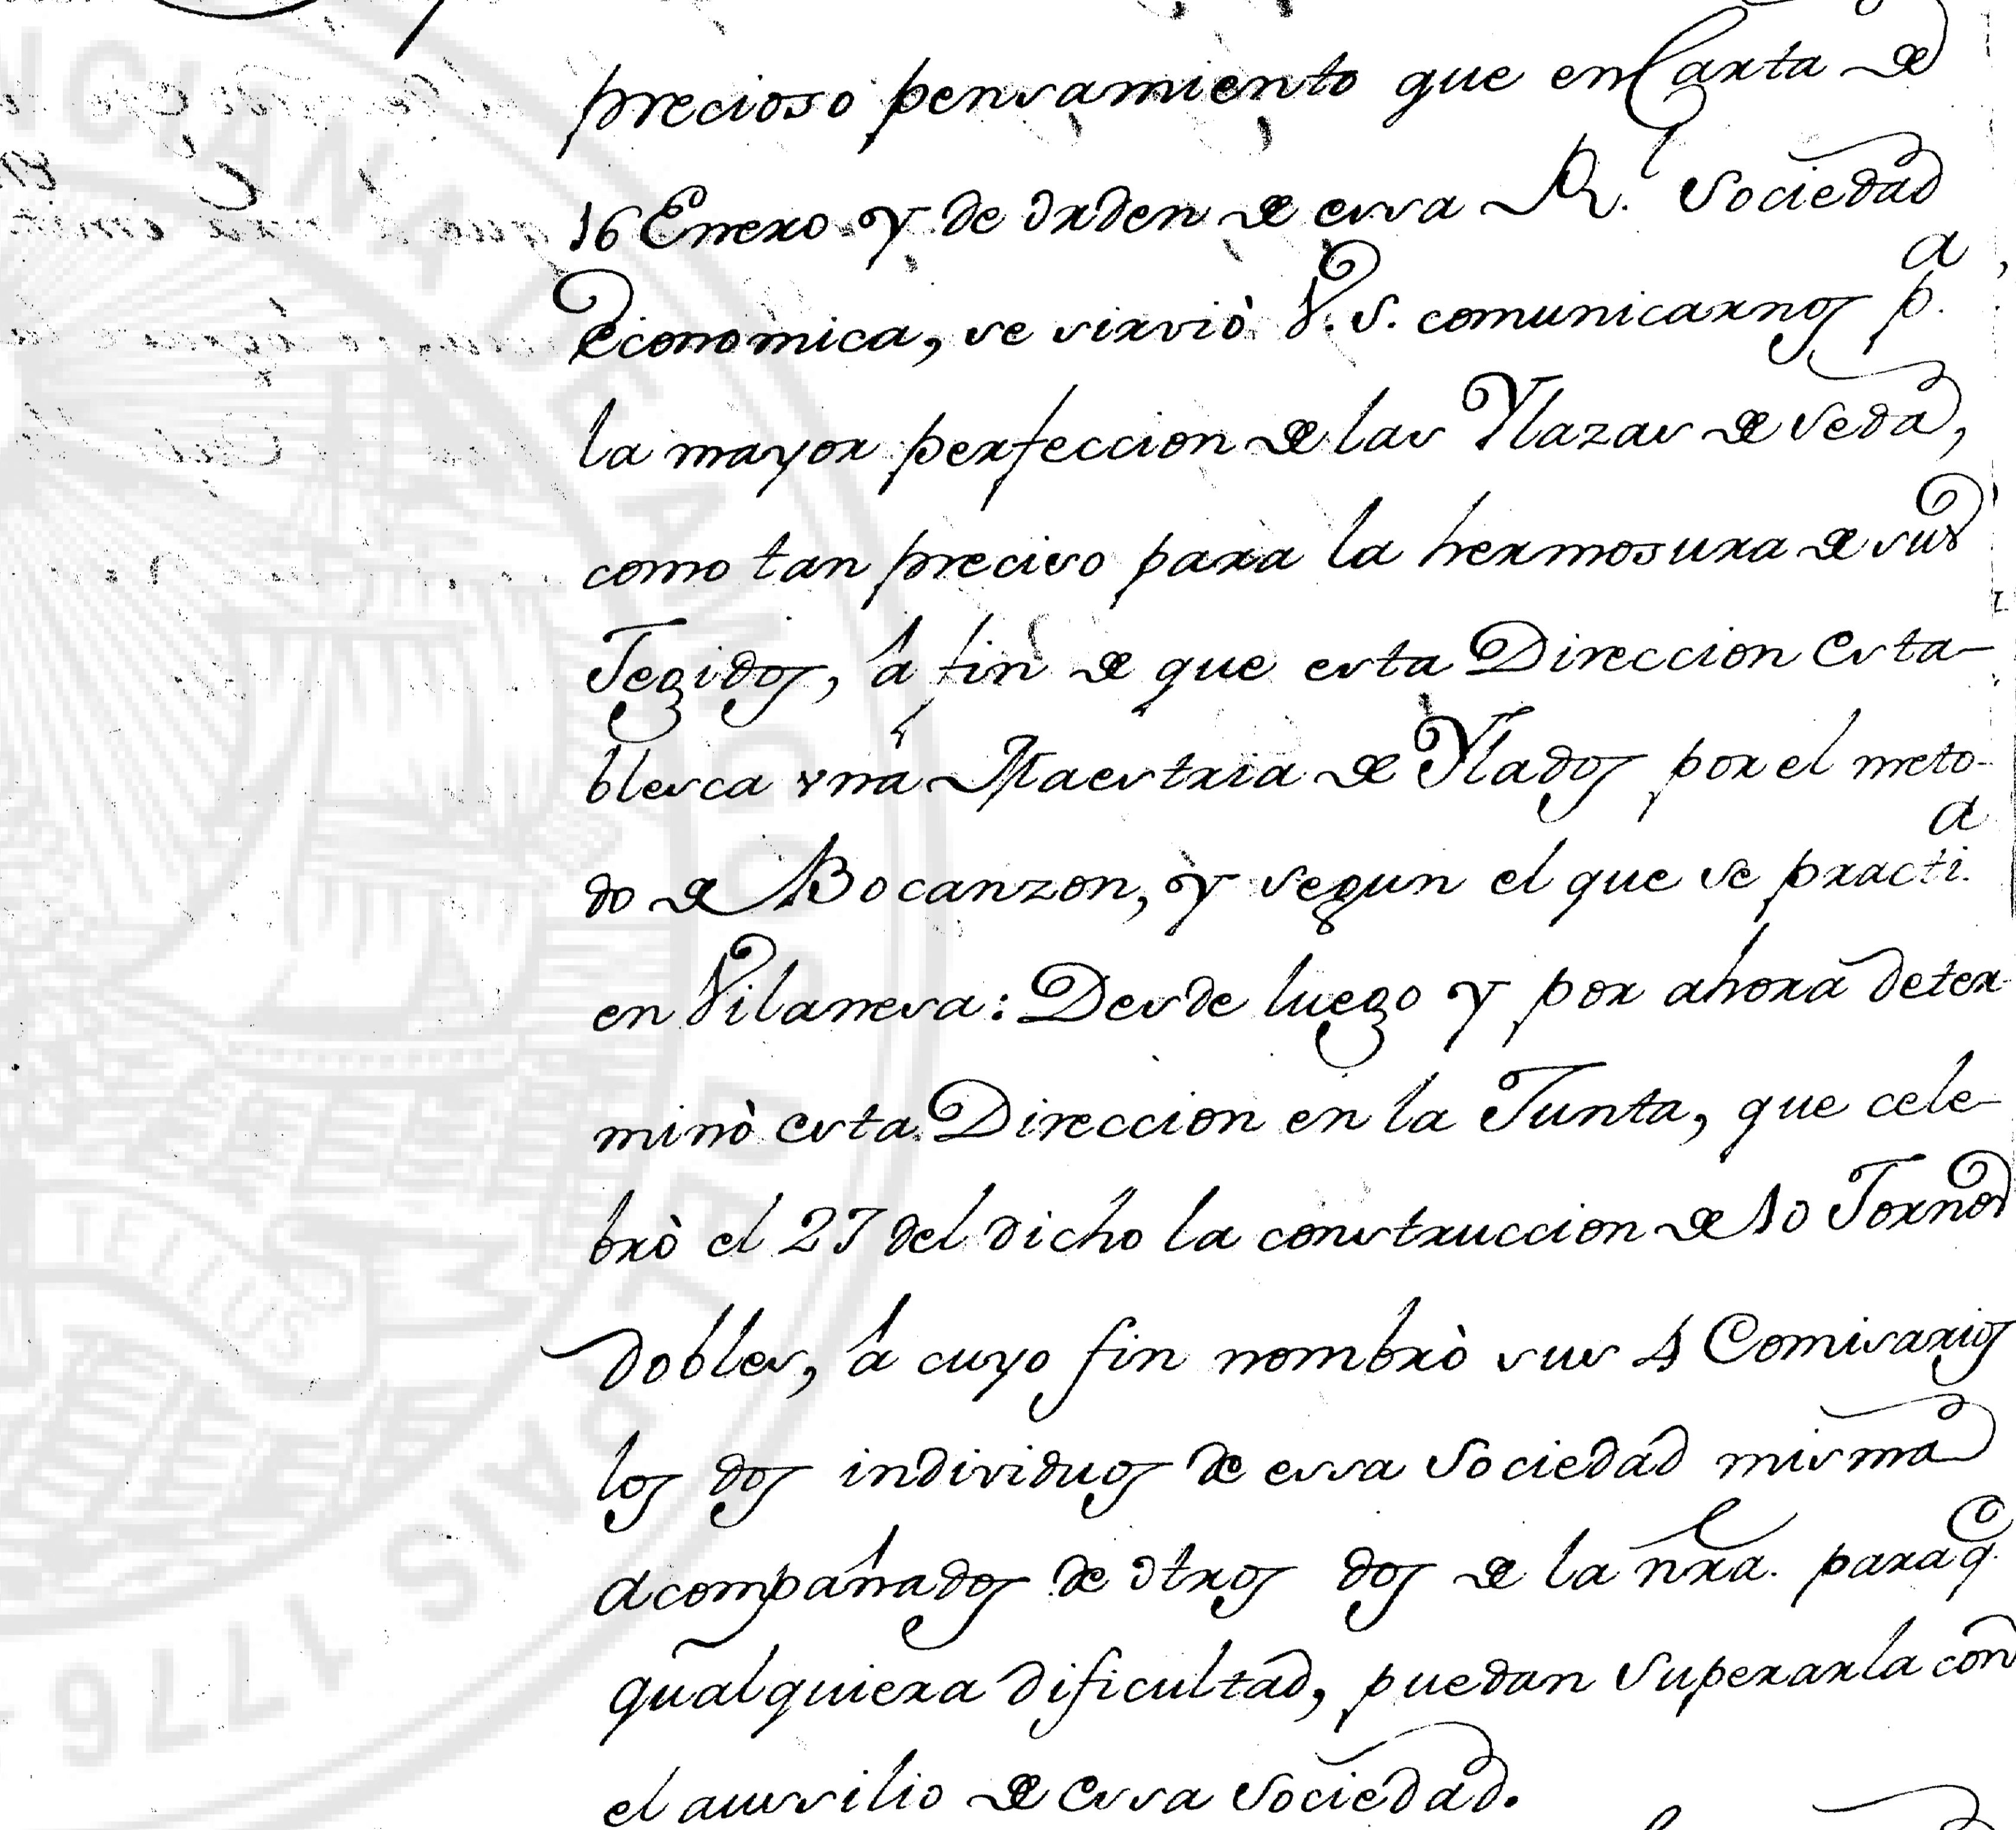 precioso pensamiento que en Carta de
16 Enero y de orden de essa Rl. Sociedad
Economica, se sirviò V. S. comunicarnos pa.
la mayor perfeccion de las Ylazas de Seda,
como tan preciso para la hermosura de sus
Tegidos, à fin de que esta Direccion esta-
blesca vna Maestria de Ylados por el meto-
do de Bocanzon, y segun el que se practia.
en Vilanesa: Desde luego y por ahora deter
minò esta Direccion en la Junta, que cele-
brò el 27 del dicho la construccion de 10 Tornos
dobles, à cuyo fin nombrò sus 4 Comisarios
los dos individuos de essa Sociedad misma
acompañados de otros dos de la nra. para q.e
qualquiera dificultad, puedan superarla con
el ausilio de essa Sociedad.
1776